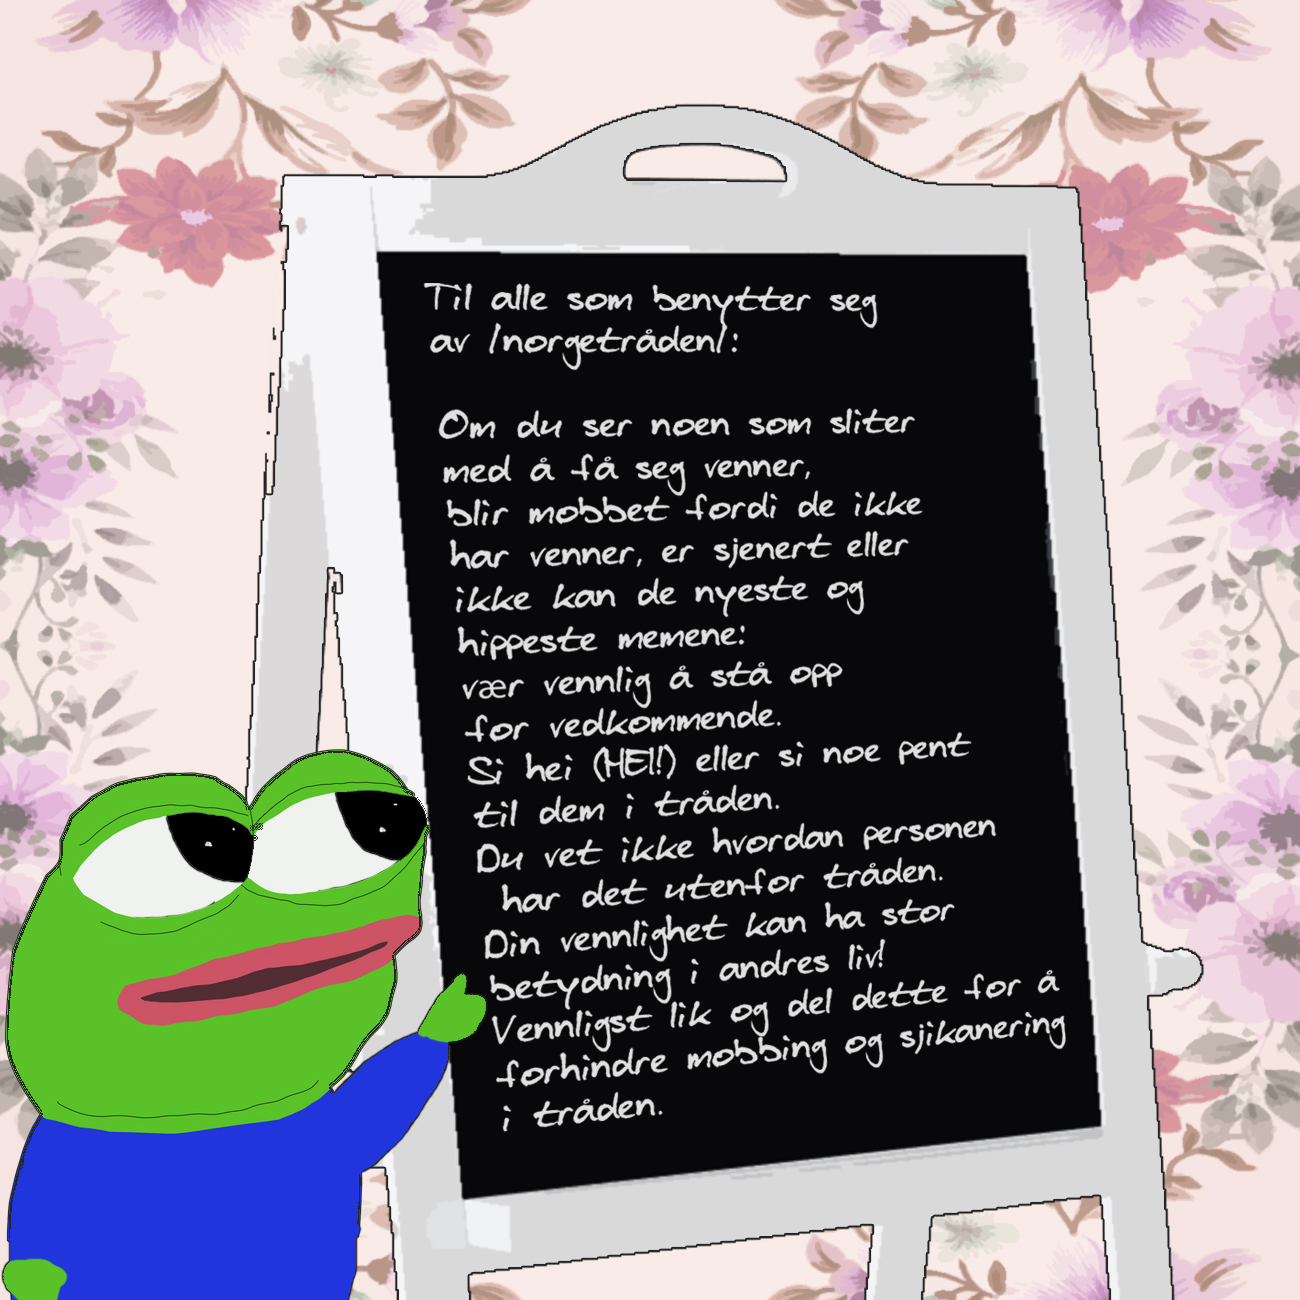 Til alle som benytter seg
av /norgetråden/:
Om du ser noen som sliter
med å få seg venner,
blir mobbet fordi de ikke
har venner, er sjenert eller
ikke kan de nyeste og
hippeste memene:
vær vennlig å stå opp
for vedkommende.
Si hei (HEI!) eller si noe pent
til dem i tråden.
Du vet ikke hvordan personen
har det utenfor tråden.
Din vennlighet kan ha stor
betydning i andres liv!
Vennligst lik og del dette for å
forhindre mobbing og sjikanering
i tråden.